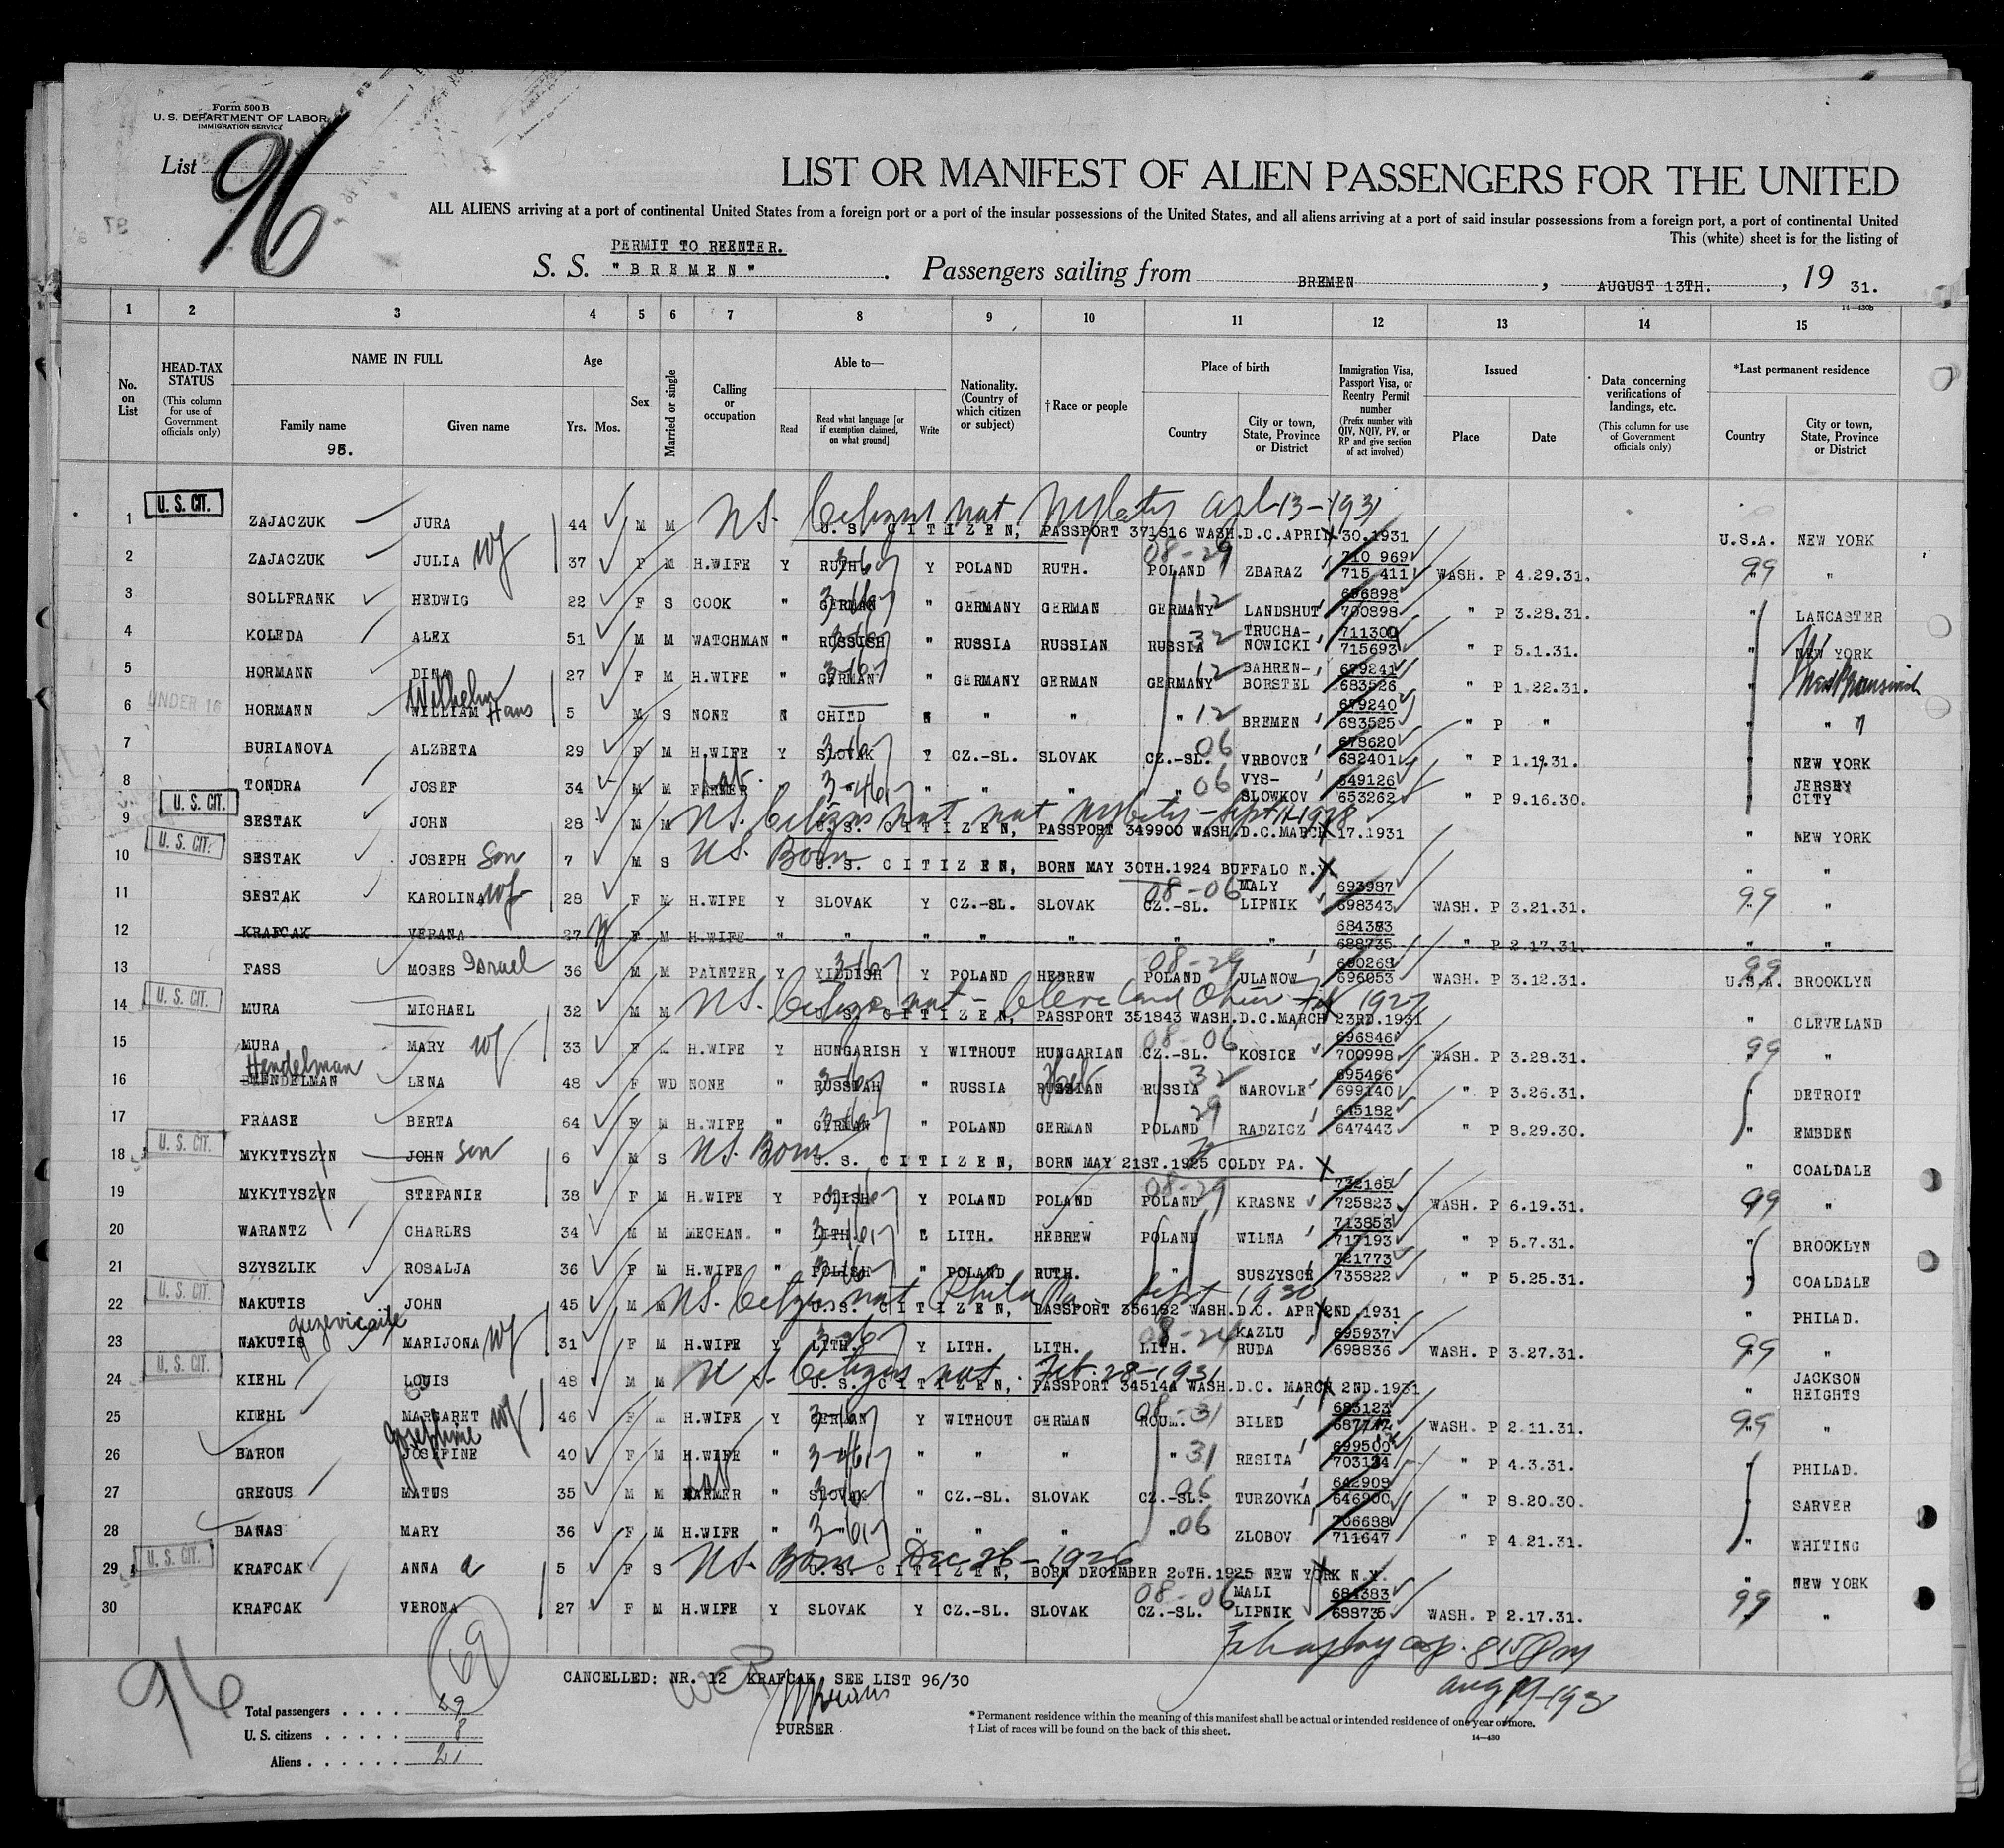 Form 500 B
U. S. DEPARTMENT OF LABOR
IMMIGRATION SERVICE
List 96
LIST OR MANIFEST OF ALIEN PASSENGERS FOR THE UNITED
ALL ALIENS arriving at a port of continental United States from a foreign port or a port of the insular possessions of the United States, and all aliens arriving at a port of said insular possessions from a foreign port, a port of continental United
This (white) sheet is for the listing of
PERMIT TO REENTER.
S. S. "BREMEN" . Passengers sailing from BREMEN , AUGUST 13TH. , 19 31.
14—430b
1 2 3 4 5 6 7 8 9 10 11 12 13 14 15
No. on List
HEAD-TAX STATUS (This column for use of Government officials only)
NAME IN FULL Family name Given name
95.
Age Yrs. Mos.
Sex
Married or single
Calling or occupation
Able to— Read Read what language [or if exemption claimed, on what ground] Write
Nationality. (Country of which citizen or subject)
†Race or people
Place of birth Country City or town, State, Province or District
Immigration Visa, Passport Visa, or Reentry Permit number (Prefix number with QIV, NQIV, PV, or RP and give section of act involved)
Issued Place Date
Data concerning verifications of landings, etc. (This column for use of Government officials only)
*Last permanent residence Country City or town, State, Province or District
1 U. S. CIT. ZAJACZUK JURA 44 M M U.S. CITIZEN, PASSPORT 371816 WASH.D.C.APRIL 30.1931 U.S.A. NEW YORK
2 ZAJACZUK JULIA wf 37 F M H.WIFE Y RUTH. Y POLAND RUTH. 08-29 POLAND ZBARAZ 710 969 715 411 WASH. P 4.29.31. 99 "
3 SOLLFRANK HEDWIG 22 F S COOK " GERMAN " GERMANY GERMAN GERMANY 12 LANDSHUT 696898 700898 " P 3.28.31. " LANCASTER
4 KOLEDA ALEX 51 M M WATCHMAN " RUSSISH " RUSSIA RUSSIAN RUSSIA 32 TRUCHA-NOWICKI 711300 715693 " P 5.1.31. " NEW YORK
5 HORMANN DINA 27 F M H.WIFE " GERMAN " GERMANY GERMAN GERMANY 12 BAHREN-BORSTEL 679241 683526 " P 1.22.31. " New Brunswick
6 UNDER 16 HORMANN WILLIAM Wilhelm Hans 5 M S NONE N CHILD N " " " 12 BREMEN 679240 683525 " P " " "
7 BURIANOVA ALZBETA 29 F M H.WIFE Y SLOVAK Y CZ.-SL. SLOVAK CZ.-SL. 06 VRBOVCE 678620 682401 " P 1.19.31. " NEW YORK
8 TONDRA JOSEF 34 M M FARMER Lab. " " " " " " 06 VYS-SLOWKOV 649126 653262 " P 9.16.30. " JERSEY CITY
9 U. S. CIT. SESTAK JOHN 28 M M U.S. CITIZEN, PASSPORT 349900 WASH.D.C.MARCH 17.1931 " NEW YORK
10 U. S. CIT. SESTAK JOSEPH Son 7 M S US. Born U.S. CITIZEN, BORN MAY 30TH.1924 BUFFALO N.Y. " "
11 SESTAK KAROLINA wf 28 F M H.WIFE Y SLOVAK Y CZ.-SL. SLOVAK 08-06 CZ.-SL. MALY LIPNIK 693987 698343 WASH. P 3.21.31. 99 "
12 KRAFCAK VERANA 27 F M H.WIFE " " " " " " " 684383 688735 " P 2.17.31. " "
13 FASS MOSES Israel 36 M M PAINTER Y YIDDISH Y POLAND HEBREW 08-29 POLAND ULANOW 690269 696053 WASH. P 3.12.31. 99 U.S.A. BROOKLYN
14 U. S. CIT. MURA MICHAEL 32 M M U.S. CITIZEN, PASSPORT 351843 WASH.D.C.MARCH 23RD.1931 " CLEVELAND
15 MURA MARY wf 33 F M H.WIFE Y HUNGARISH Y WITHOUT HUNGARIAN 08-06 CZ.-SL. KOSICE 696846 700998 WASH. P 3.28.31. 99 "
16 Hendelman LENA 48 F WD NONE " RUSSIAH " RUSSIA RUSSIAN RUSSIA 32 NAROVLE 695466 699140 " P 3.26.31. " DETROIT
17 FRAASE BERTA 64 F M H.WIFE " GERMAN " POLAND GERMAN POLAND 29 RADZICZ 645182 647443 " P 8.29.30. " EMBDEN
18 U. S. CIT. MYKYTYSZYN JOHN son 6 M S US. Born U.S. CITIZEN, BORN MAY 21ST.1925 COLDY PA. " COALDALE
19 MYKYTYSZYN STEFANIE 38 F M H.WIFE Y POLISH Y POLAND POLAND 08-29 POLAND KRASNE 732165 725823 WASH. P 6.19.31. 99 "
20 WARANTZ CHARLES 34 M M MECHAN. " LITH. " LITH. HEBREW POLAND WILNA 713853 717193 " P 5.7.31. " BROOKLYN
21 SZYSZLIK ROSALJA 36 F M H.WIFE " POLISH " POLAND RUTH. " SUSZYSCE 721773 735822 " P 5.25.31. " COALDALE
22 U. S. CIT. NAKUTIS JOHN 45 M M U.S. CITIZEN, PASSPORT 356182 WASH.D.C. APR 2ND.1931 " PHILAD.
23 NAKUTIS MARIJONA wf 31 F M H.WIFE Y LITH. Y LITH. LITH. 08-24 LITH. KAZLU RUDA 695937 698836 WASH. P 3.27.31. 99 "
24 U. S. CIT. KIEHL LOUIS 48 M M Feb. 28-1931 U.S. CITIZEN, PASSPORT 345144 WASH.D.C. MARCH 2ND.1931 " JACKSON HEIGHTS
25 KIEHL MARGARET wf 46 F M H.WIFE Y GERMAN Y WITHOUT GERMAN 08-31 ROUM. BILED 683123 WASH. P 2.11.31. 99 "
26 BARON JOSEFINE Josephine 40 F M H.WIFE " " " " " 31 RESITA 699500 " P 4.3.31. " PHILAD.
27 GREGUS MATUS 35 M M FARMER Lab " SLOVAK " CZ.-SL. SLOVAK CZ.-SL. 06 TURZOVKA 642909 646900 " P 8.20.30. " SARVER
28 BANAS MARY 36 F M H.WIFE " " " " " " 06 ZLOBOV 706688 711647 " P 4.21.31. " WHITING
29 U. S. CIT. KRAFCAK ANNA 5 F S US. Born Dec-26-1926 U.S. CITIZEN, BORN DECEMBER 26TH.1925 NEW YORK N.Y. " NEW YORK
30 KRAFCAK VERONA 27 F M H.WIFE Y SLOVAK Y CZ.-SL. SLOVAK 08-06 CZ.-SL. MALI LIPNIK 684383 688735 WASH. P 2.17.31. 99 "
96
69
815 PM
Aug 19-1931
CANCELLED: NR. 12 KRAFCAK SEE LIST 96/30
PURSER
Total passengers . . . . 29
U. S. citizens . . . . . 8
Aliens . . . . . . 21
* Permanent residence within the meaning of this manifest shall be actual or intended residence of one year or more.
† List of races will be found on the back of this sheet.
14—430